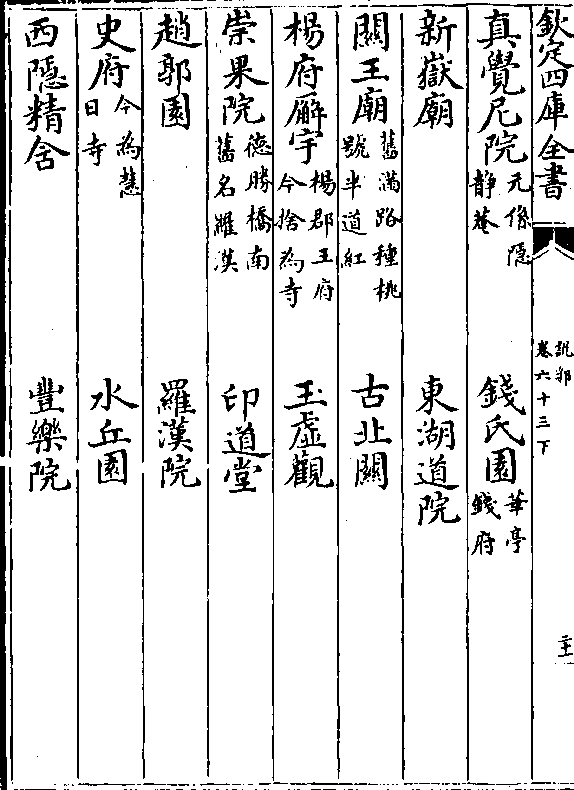 欽定四庫全書
說郛
卷六十三下
真覺尼院 元係隱靜菴 錢氏園 華亭錢府
新嶽廟 東湖道院
關王廟 舊滿路種桃號半道紅 古北關
楊府廨宇 楊郡王府今捨為寺 玉虛觀
崇果院 德勝橋南舊名羅漢 印道堂
趙郭園 羅漢院
史府 今為慧日寺 水丘園
西隱精舍 豐樂院